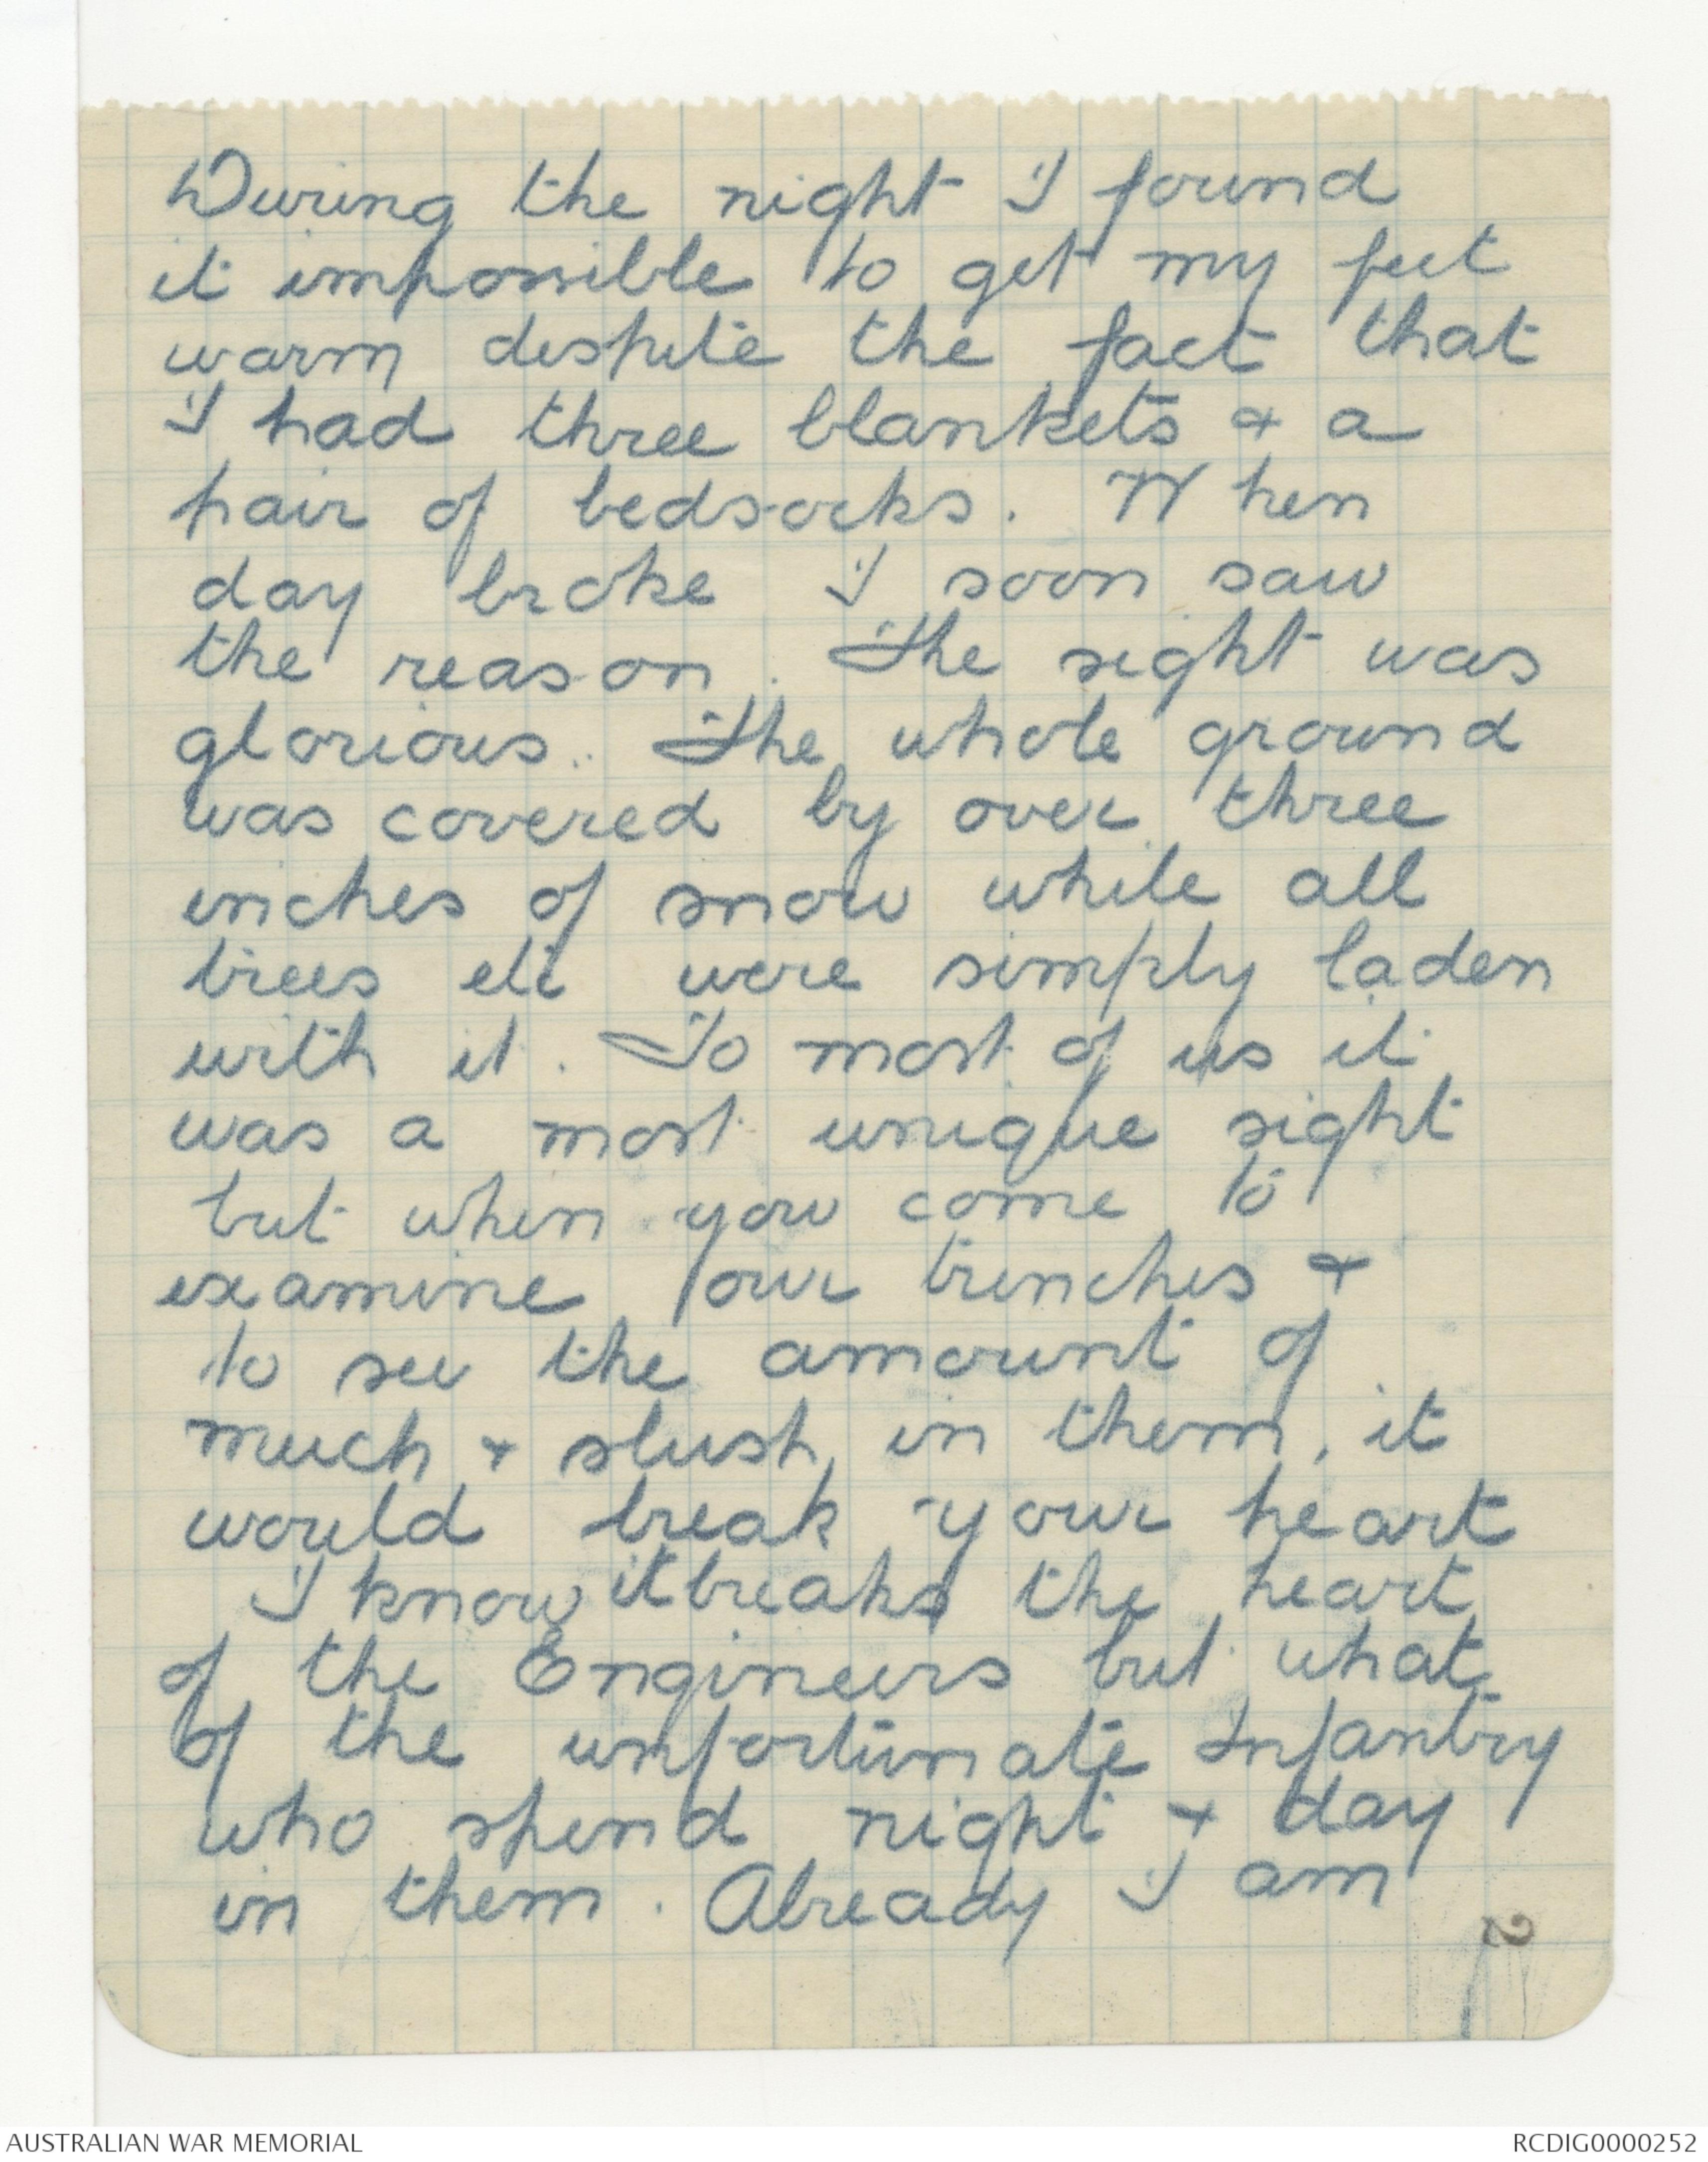 During the night I found
it impossible to get my feet
warm despite the fact that
I had three blankets & a
pair of bedsocks. When
day broke I soon saw
the reason. The sight was
glorious. The whole ground
was covered by over three
inches of snow while all
trees etc were simply laden
with it. To most of us it
was a most unique sight
but when you come to
examine our trenches &
to see the amount of
much & slush in them, it
would break your heart
I know it breaks the heart
of the Engineers but what
of the unfortunate Infantry
who spend night & day
in them. Already I am
2
AUSTRALIAN WAR MEMORIAL
RCDIG0000252